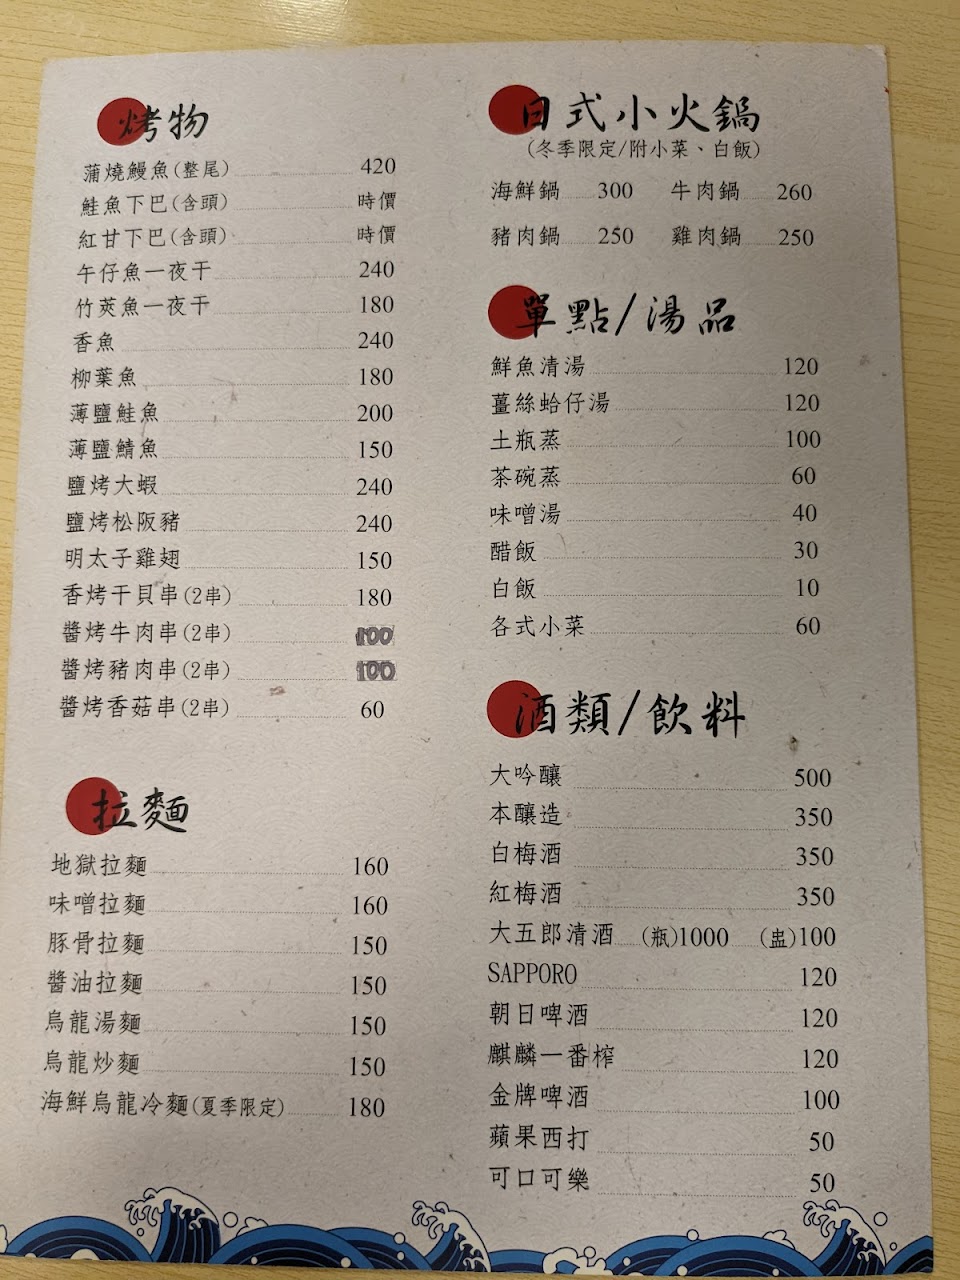 烤物
蒲燒鰻魚(整尾) 420
鮭魚下巴(含頭) 時價
紅甘下巴(含頭) 時價
午仔魚一夜干 240
竹莢魚一夜干 180
香魚 240
柳葉魚 180
薄鹽鮭魚 200
薄鹽鯖魚 150
鹽烤大蝦 240
鹽烤松阪豬 240
明太子雞翅 150
香烤干貝串(2串) 180
醬烤牛肉串(2串) 100
醬烤豬肉串(2串) 100
醬烤香菇串(2串) 60
拉麵
地獄拉麵 160
味噌拉麵 160
豚骨拉麵 150
醬油拉麵 150
烏龍湯麵 150
烏龍炒麵 150
海鮮烏龍冷麵(夏季限定) 180
日式小火鍋
(冬季限定/附小菜、白飯)
海鮮鍋 300 牛肉鍋 260
豬肉鍋 250 雞肉鍋 250
單點/湯品
鮮魚清湯 120
薑絲蛤仔湯 120
土瓶蒸 100
茶碗蒸 60
味噌湯 40
醋飯 30
白飯 10
各式小菜 60
酒類/飲料
大吟釀 500
本釀造 350
白梅酒 350
紅梅酒 350
大五郎清酒 (瓶)1000 (盅)100
SAPPORO 120
朝日啤酒 120
麒麟一番榨 120
金牌啤酒 100
蘋果西打 50
可口可樂 50